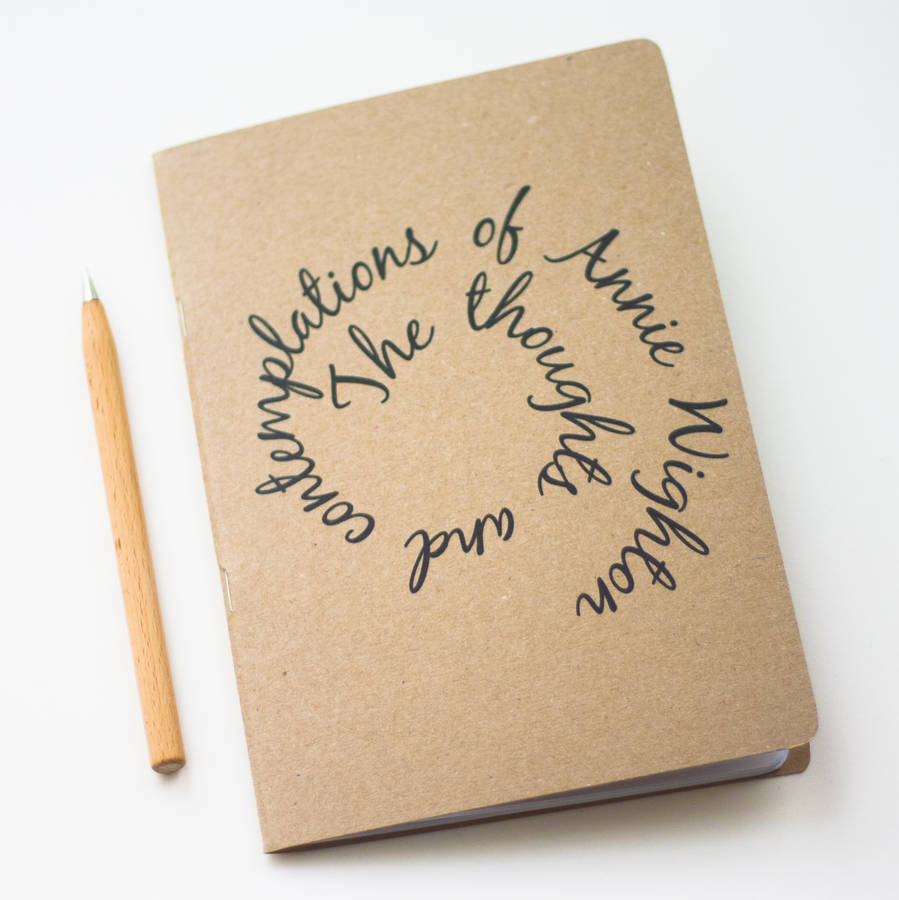 The thoughts and contemplations of Annie Wighton